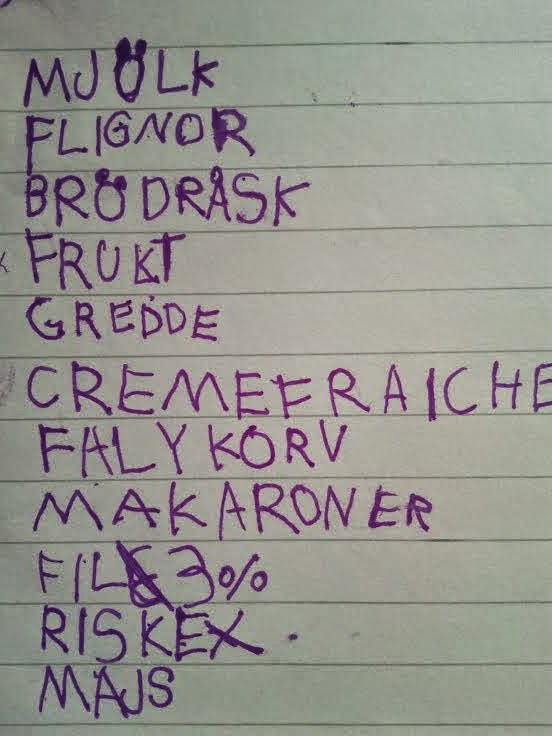 MJÖLK
FLIGNOR
BRÖDRÅSK
FRUKT
GREDDE
CREMEFRAICHE
FALYKORV
MAKARONER
FIL 3%
RISKEX
MAJS